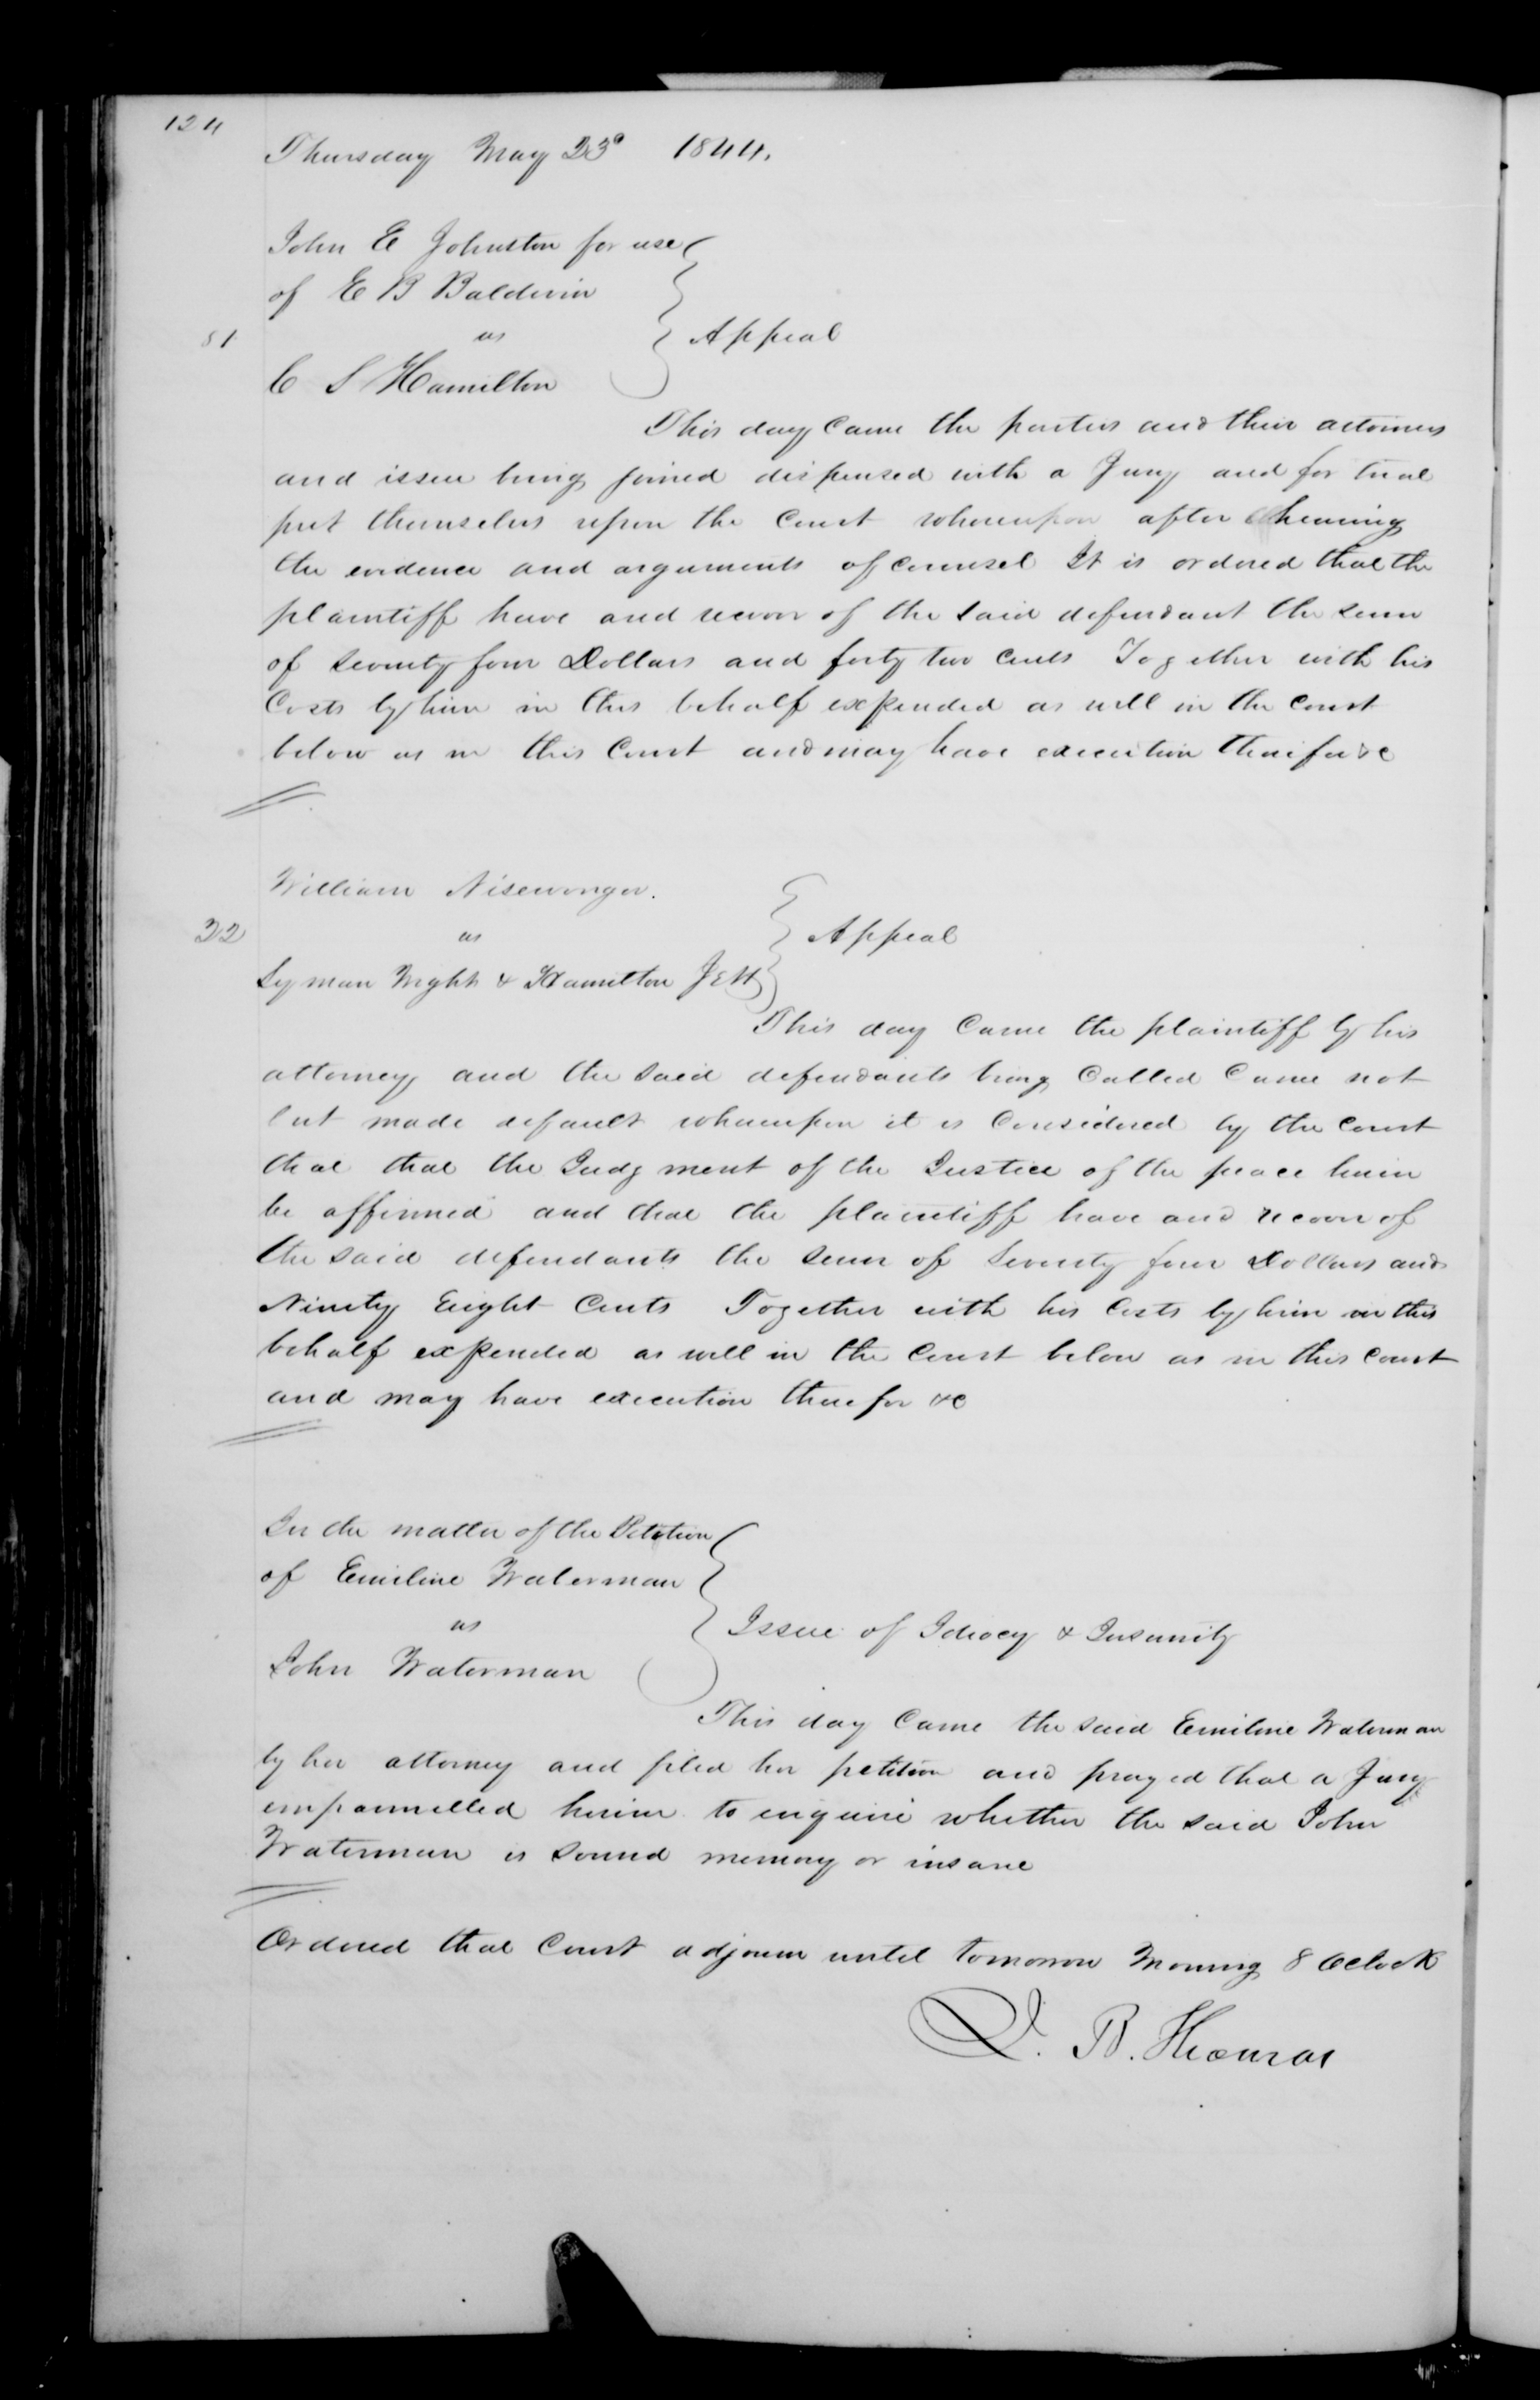 124
Thursday May 23d 1844.
John E Johnston for use
of E B Baldwin
81 vs Appeal
C S Hamilton
This day Came the parties and their attornies
and issue being joined dispensed with a Jury and for trial
put themselves upon the Court whereupon after hearing
the evidence and arguments of counsel It is ordered that the
plaintiff have and recover of the said defendant the sum
of Seventy four Dollars and forty two cents Together with his
Costs by him in this behalf expended as well in the court
below as in this Court and may have execution therefor &c
William Nisewonger.
32 vs Appeal
Lyman Wight &  Hamilton Jett
This day Came the plaintiff by his
attorney and the said defendants being Called Came not
but made default whereupon it is Considered by the Court
that that the Judgment of the Justice of the peace herein
be affirmed and that the plaintiff have and recover of
the said defendants the sum of Seventy four Dollars and
Ninety Eight Cents Together with his Costs by him in this
behalf expended as well in the Court below as in this Court
and may have execution therefor &c
In the matter of the Petition
of Emiline Waterman
vs Issue of Idiocy & Insanity
John Waterman
This day Came the said Emiline Waterman
by her attorney and filed her petition and prayed that a Jury
empannelled herein to enquire whether the said John
Waterman is sound memory or insane
Ordered that Court adjourn until tomorrow Morning 8 Oclock
J. B. Thomas